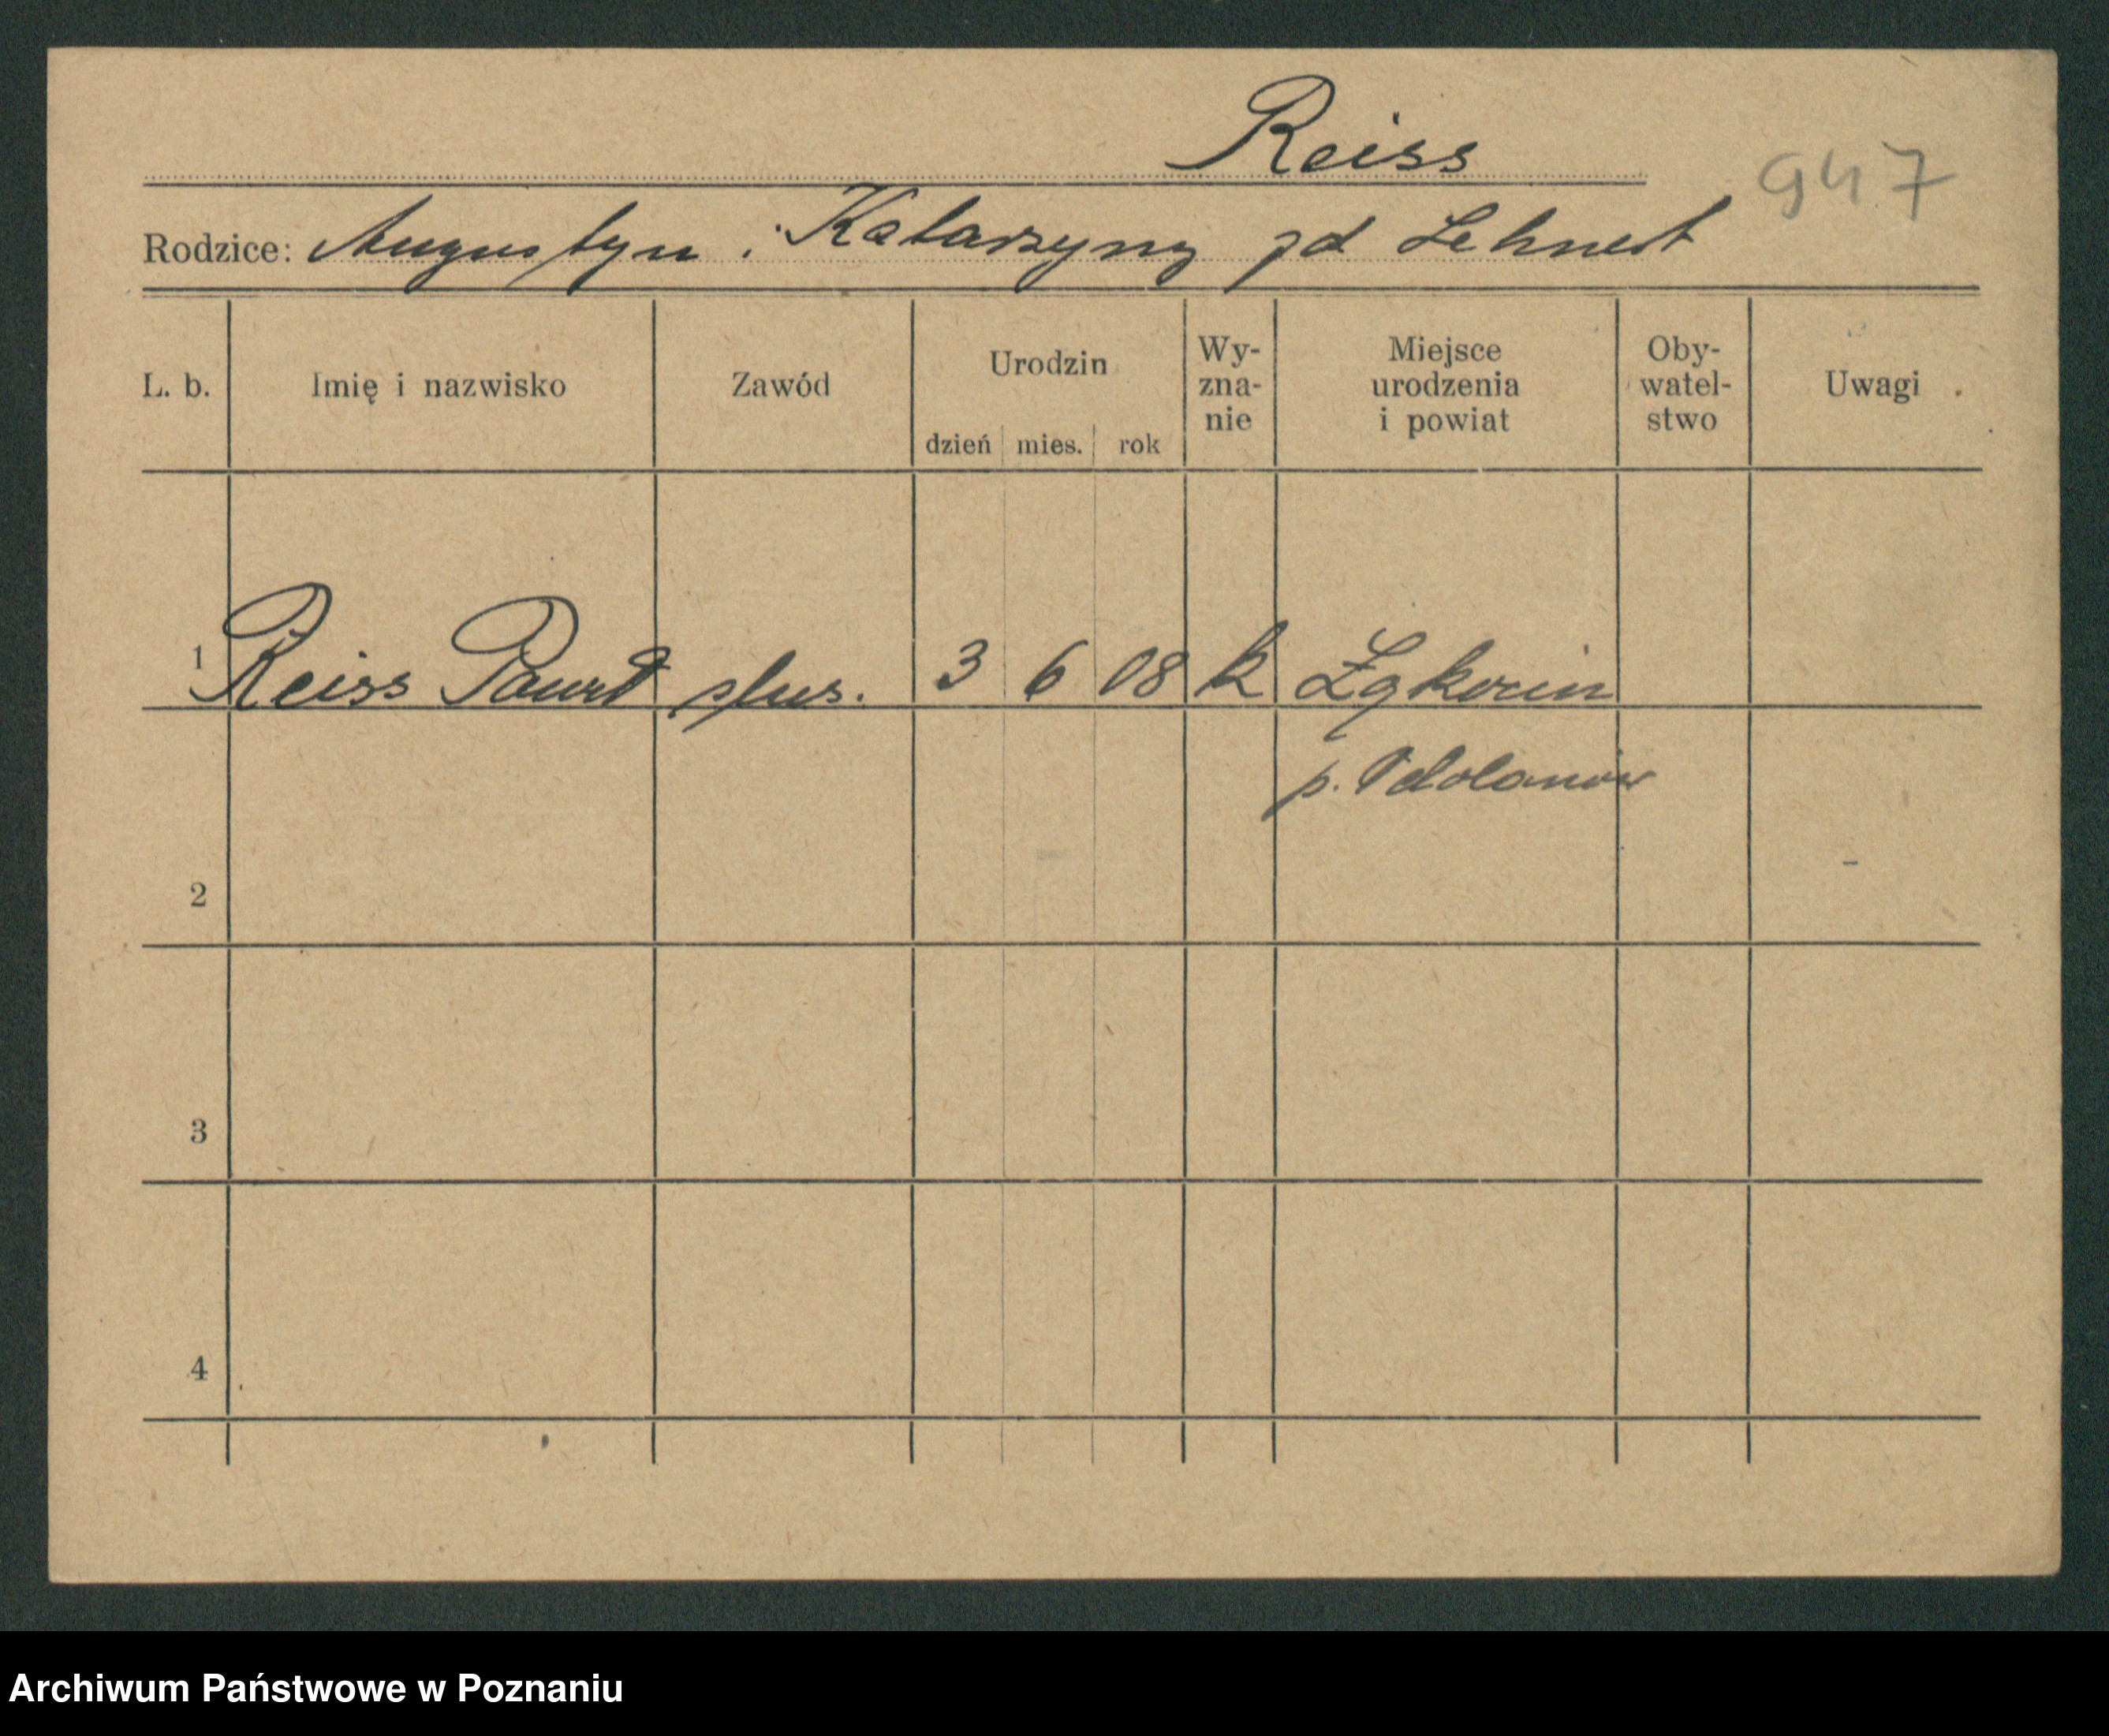 Reiss
947
Rodzice: Augustyn i Katarzyny zd Lehnert
L. b. Imię i nazwisko Zawód Urodzin dzień mies. rok Wy-zna-nie Miejsce urodzenia i powiat Oby-watel-stwo Uwagi
1 Reiss Paweł ślus. 3 6 08 k
p. Odolanów
2
3
4
Archiwum Państwowe w Poznaniu